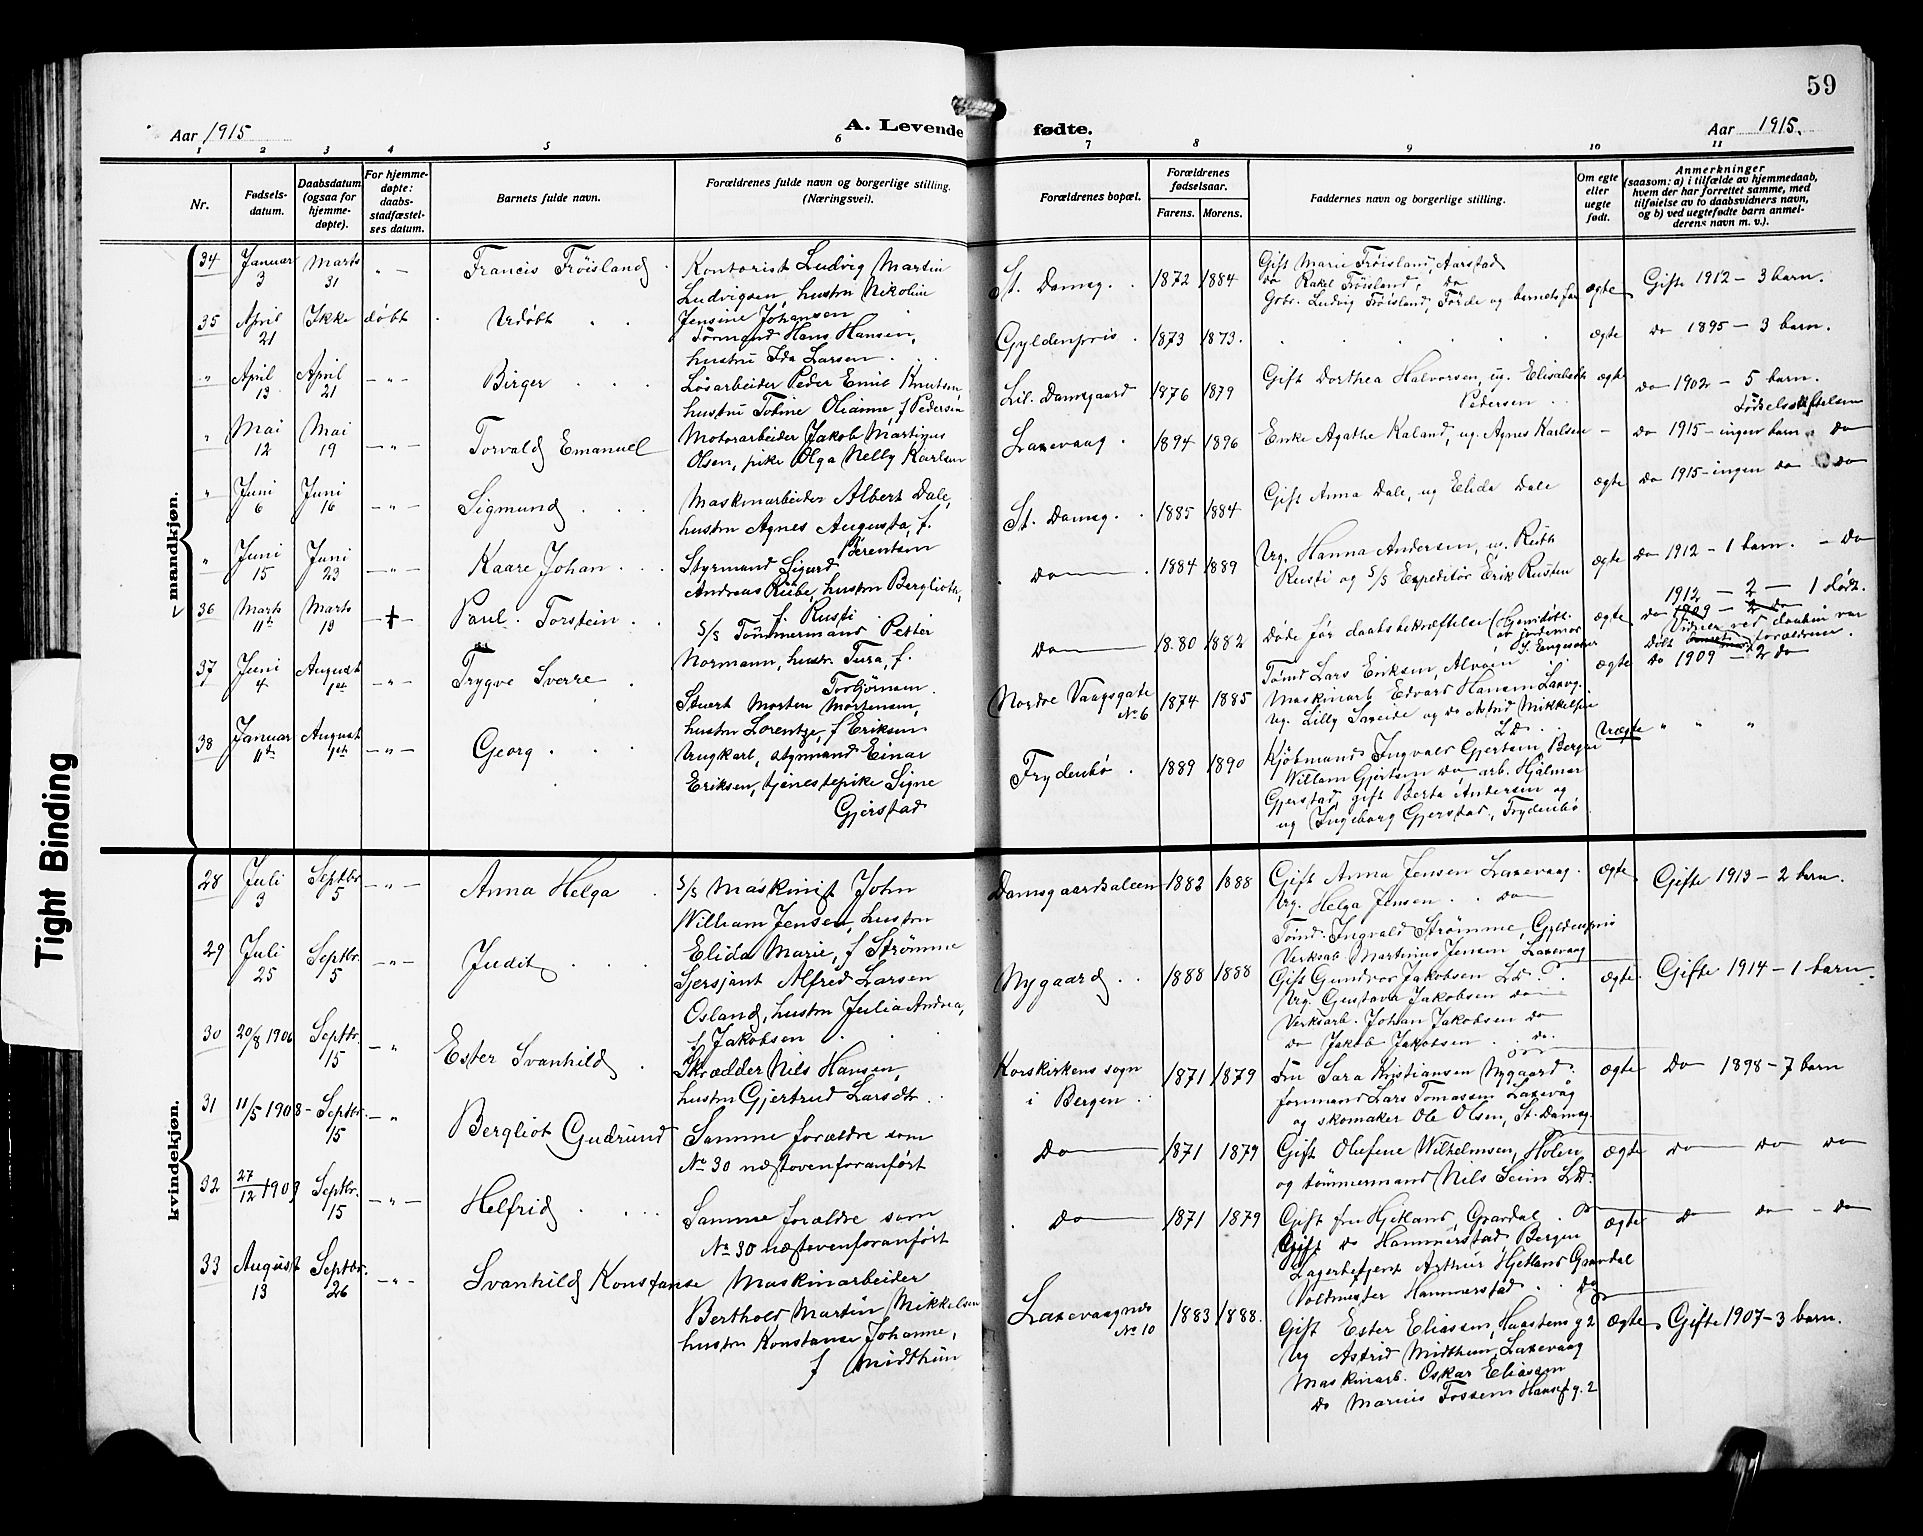 59
Aar 1915
A. Levende fødte.
Aar 1915.
1 2 3 4 5 6 7 8 9 10 11
Nr.
Fødsels-
datum.
Daabsdatum
(ogsaa for
hjemme-
døpte).
For hjemme-
døpte:
daabs-
stadfæstel-
ses datum.
Barnets fulde navn.
Forældrenes fulde navn og borgerlige stilling.
(Næringsvei).
Forældrenes bopæl.
Forældrenes
fødselsaar.
Farens. Morens.
Faddernes navn og borgerlige stilling.
Om egte
eller
uegte
født.
Anmerkninger
(saasom: a) i tilfælde av hjemmedaab,
hvem der har forrettet samme, med
tilføielse av to daabsvidners navn,
og b) ved uegtefødte barn anmel-
derens navn m. v.).
mandkjøn.
34 Januar 3 Marts 31 " – Francis Frøisland
Kontorist Ludvig Martin
Ludvigsen, hustru Nikoline
Jensine Johansen
St. Damsg. 1872 1884
Gift Marie Frøisland, Aarstad
do Rakel Frøisland, do
Grbr. Ludvig Frøisland, Førde og barnets far
ægte Gifte 1912 – 3 barn.
35 April 21 Ikke døbt Udøbt
Tørmand Hans Hansen,
hustru Ida Larsen
Gyldenpris 1873 1873.
ægte do 1895 – 3 barn.
" April 13 April 21 – " – Birger
Løsarbeider Peder Emil Knutsen
hustru Tobine Olianne f Pedersen
Lil. Damsgaard 1876 1879
Gift Dorthea Halvorsen, ug. Elisabeth
Pedersen
ægte do 1902 – 5 barn.
Fødselsstiftelsen
" Mai 12 Mai 19 – " – Torvald Emanuel
Motorarbeider Jakob Martinus
Olsen, pike Olga Nelly Karlsen
Laxevaag 1894 1896
Enke Agathe Kaland, ug. Agnes Karlsen
– do 1915 – ingen barn, do
" Juni 6 Juni 16 – " – Sigmund
Maskinarbeider Albert Dale,
hustru Agnes Augusta, f.
Berentsen
St. Damsg. 1885 1884
Gift Anna Dale, ug Elida Dale
ægte do 1915 – ingen do do
" Juni 15 Juni 23 – " – Kaare Johan
Styrmand Sigurd
Andreas Rübe, hustru Bergliot,
f. Rusti
do 1884 1889
Ug. Hanna Andersen, u. Ruth
Rusti og S/S Expeditør Erik Rusten
ægte do 1912 – 1 barn. – do
36 Marts 11te Marts 19 Paul Torstein
S/S Tømmermand Petter
Normann, hustru Tura, f.
Torbjörnsen
do 1880 1882
Døde før daabsbekræftelse (hjemdøbt
av jordemor
Engesæter
ægte 1912 – 2 – 1 dødt.
do 1909 – 2 do
Vidner ved daaben var
forældrene.
37 Juni 4 August 1ste – " – Trygve Sverre
Stuert Morten Mortensen,
hustru Lorentze, f Eriksen
Nordre Vaagsgate
No 6 1874 1885
Tømd Lars Eriksen, Alvøen
Maskinarb Edvard Hansen Laxvg.
Ug. Lilly Sæveide og do Astrid Mikkelsen
Ld
ægte do 1909 – 2 do
38 Januar 11te August 1ste – " – Georg
Ungkarl, styrmand Einar
Eriksen, tjenestepike Signe
Gjerstad
Frydenbø 1889 1890
Kjøbmand Ingvald Gjertsen, Bergen
Willam Gjertsen do arb. Hjalmar
Gjerstad, gift Berta Andersen og
ug Ingeborg Gjerstad, Frydenbø
Uægte " " "
kvindekjøn.
28 Juli 3 Septbr 5 – " – Anna Helga
S/S Maskinist John
William Jensen, hustru
Elida Marie, f Strømme
Damsgaardsaleen 1882 1888
Gift Anna Jensen Laxevaag.
Ug. Helga Jensen do
Tømd. Ingvald Strømme, Gyldenpris
Verksab Martinus Jensen Laxevaag
ægte Gifte 1913 – 2 barn.
29 Juli 25 Septbr. 5 – " – Judit
Sersjant Alfred Larsen
Osland, hustru Julia Andrea,
f Jakobsen
Nygaard 1888 1888
Gift Gundror Jakobsen Ld
Ug. Gustava Jakobsen do
Verksarb. Johan Jakobsen do
do Jakob Jakobsen do.
ægte. Gifte 1914 – 1 barn.
30 20/8 1906 Septbr. 15 – " Ester Svanhild
Skrædder Nils Hansen,
hustru Gjertrud Larsdtr
Korskirkens sogn
i Bergen 1871 1879
Fru Sara Kristiansen Nygaard
formand Lars Tomassen Laxevåg
og skomaker Ole Olsen, St. Damsg.
ægte do 1898 – 7 barn
31 11/5 1908 – Septbr. 15 – " Bergliot Gudrund
Samme forældre som
No 30 næstovenforanført
do 1871 1879
Gift Olufine Wilhelmsen, Holen
og tømmermand Nils Seim Ld.
ægte do do do
32 27/12 1903 Septbr. 15 – " – Helfrid
Samme forældre som
No 30 næstovenforanført
do 1871 1879
Gift fru Hjetland, Gravdal
Gift do Hammerstad Bergen
Lagerbetjent Arthur Hjetland Gravdal
Voldmester Hammerstad do
ægte do do – do
33 August 13 Septbr. 26 – " – Svanhild Konstanse
Maskinarbeider
Berthold Martin Mikkelsen
hustru Konstanse Johanne,
f Midthun
Laxevaagnes
No 10 1883 1888.
Gift Ester Eliassen, Haasteins g 2
Ug Astrid Midthun, Laxevaag
Maskinarb. Oskar Eliassen
do Marius Fossem Hanses g. 2
ægte Gifte 1907 – 3 barn.
Tight Binding